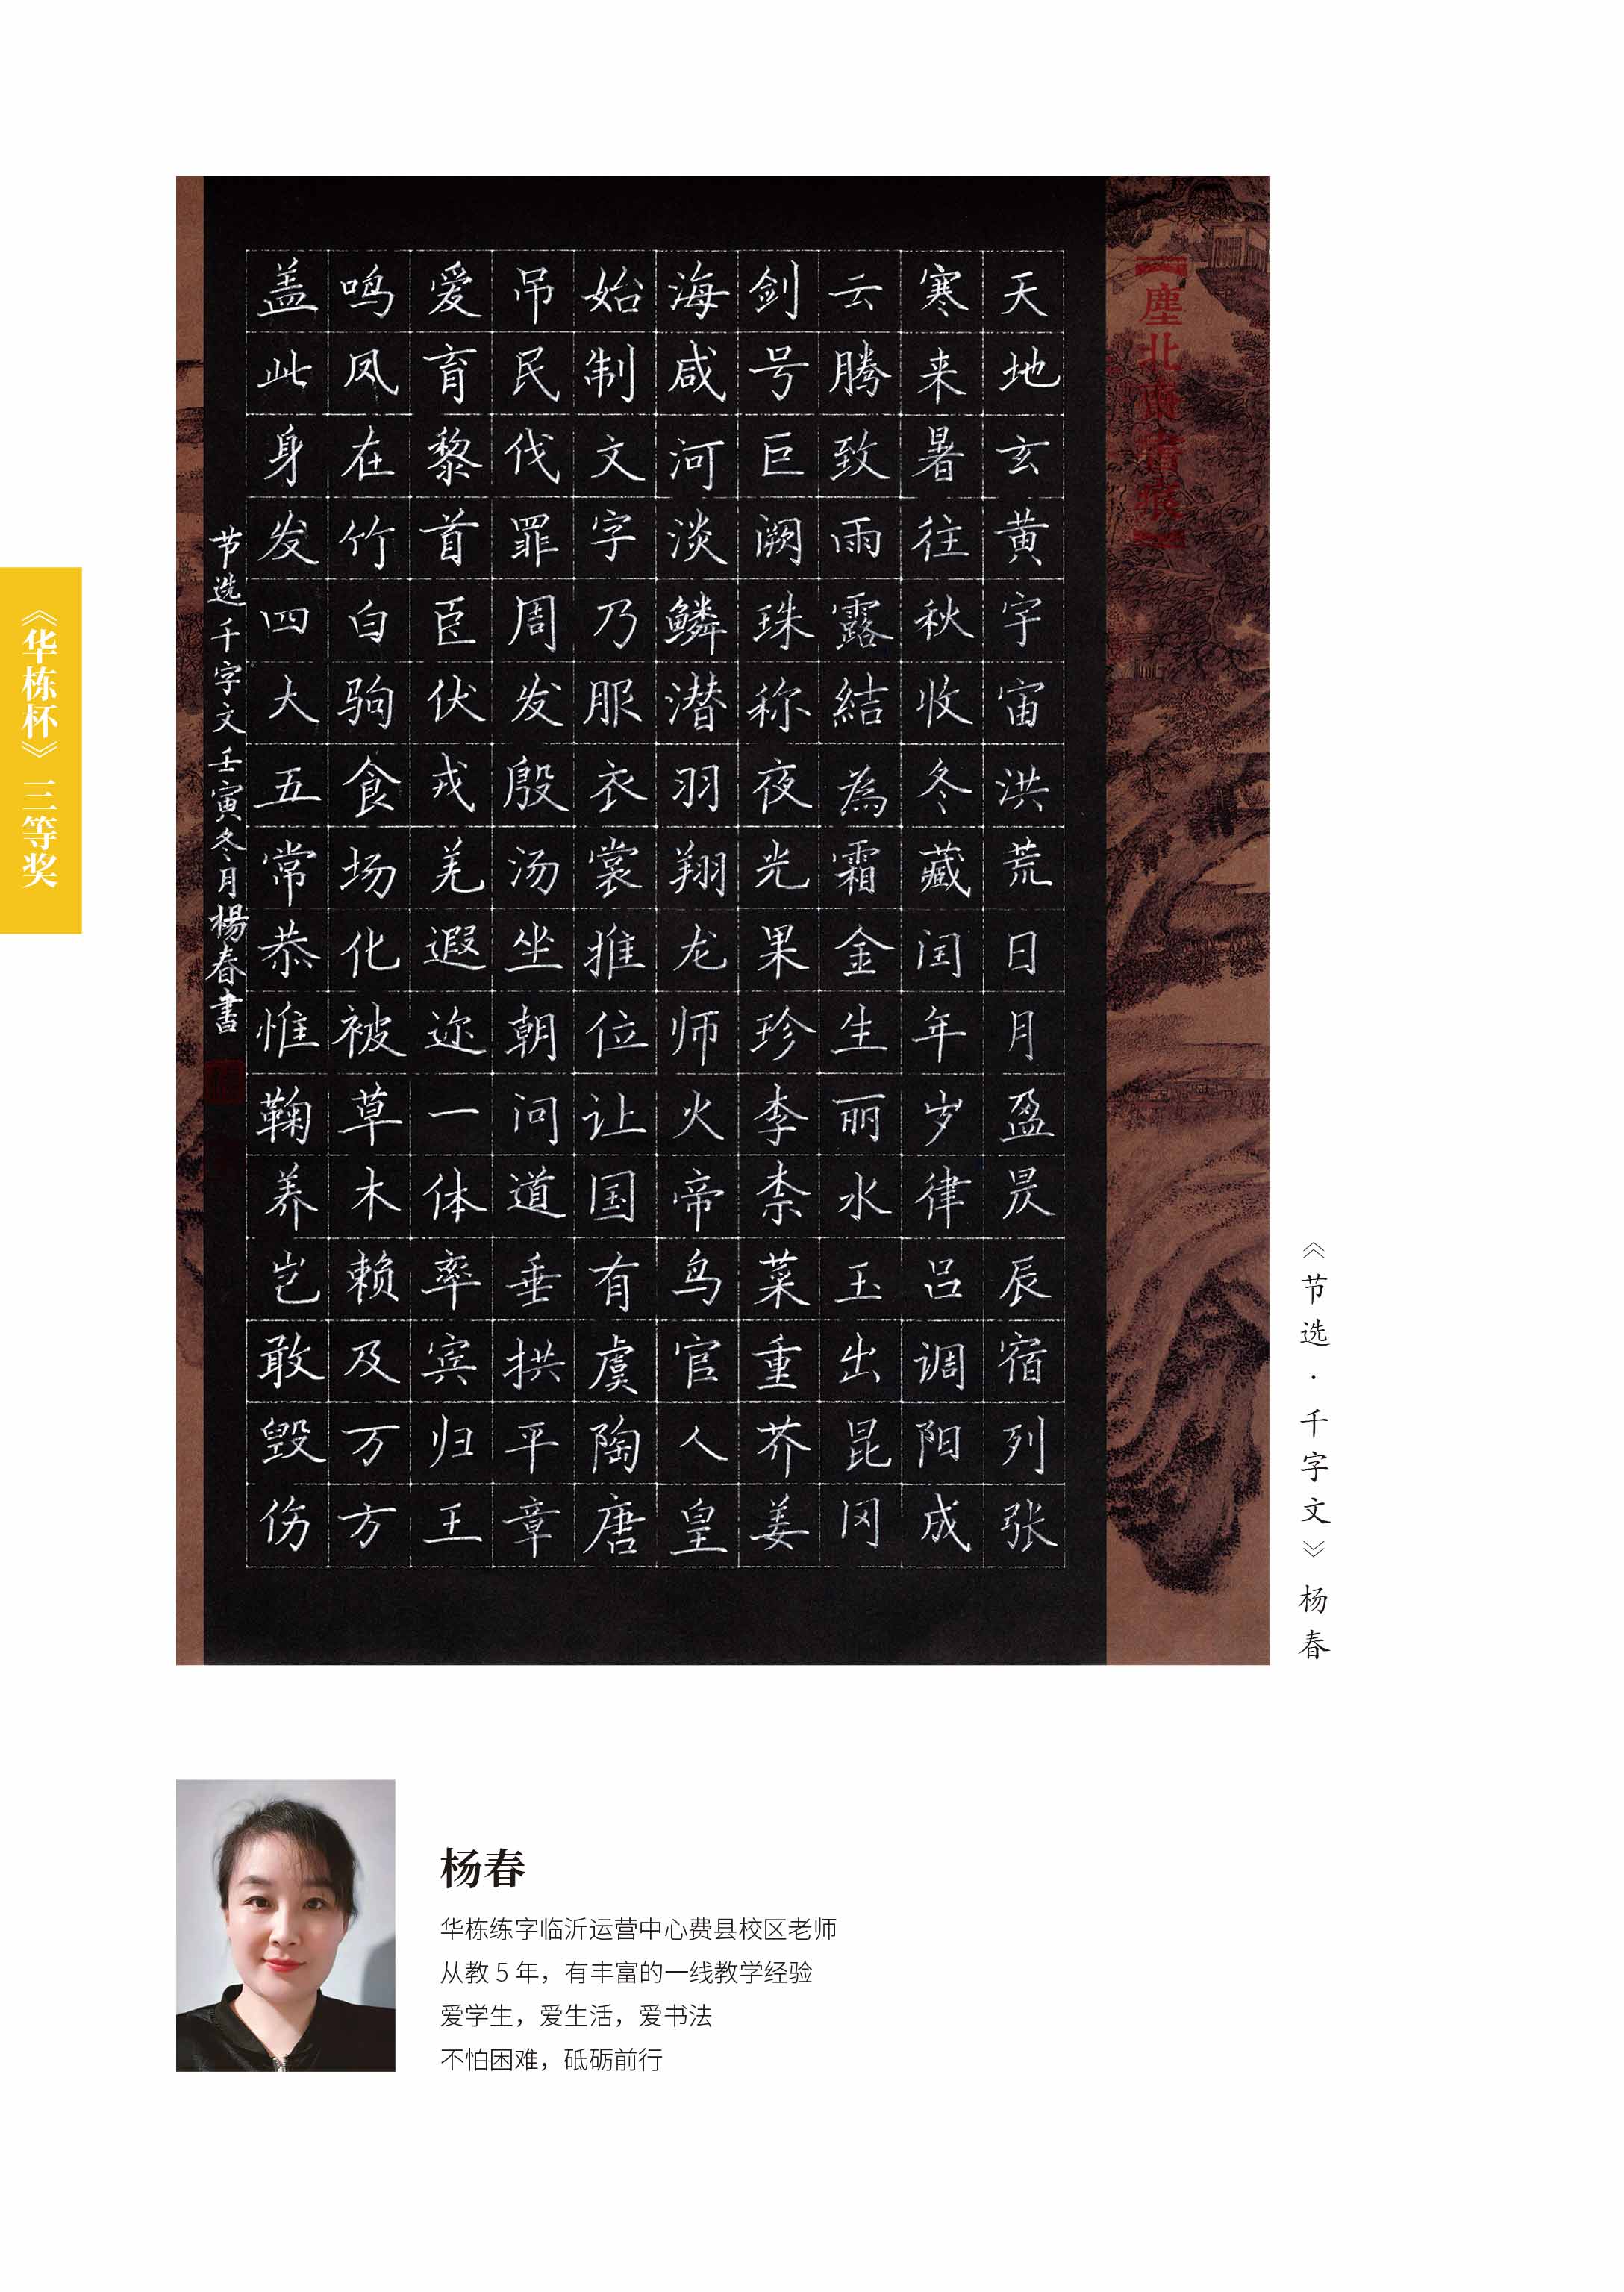 天地玄黄宇宙洪荒日月盈昃辰宿列张
寒来暑往秋收冬藏闰年岁律吕调阳成
云腾致雨露結為霜金生丽水玉出昆冈
剑号巨阙珠称夜光果珍李柰菜重芥姜
海咸河淡鳞潜羽翔龙师火帝鸟官人皇
始制文字乃服衣裳推位让国有虞陶唐
吊民伐罪周发殷汤坐朝问道垂拱平章
爱育黎首臣伏戎羌遐迩一体率宾归王
鸣凤在竹白驹食场化被草木赖及万方
盖此身发四大五常恭惟鞠养岂敢毁伤
节选千字文壬寅冬月楊春書
《华栋杯》三等奖
《节选·千字文》杨春
杨春
华栋练字临沂运营中心费县校区老师
从教 5 年，有丰富的一线教学经验
爱学生，爱生活，爱书法
不怕困难，砥砺前行